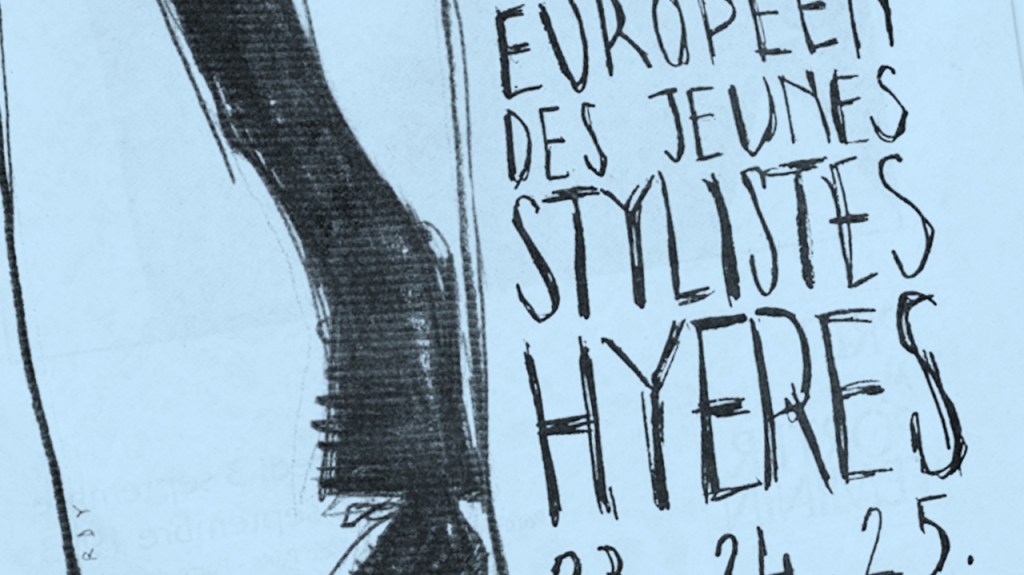 EUROPEEN
DES JEUNES
STYLISTES
HYERES
23 24 25.